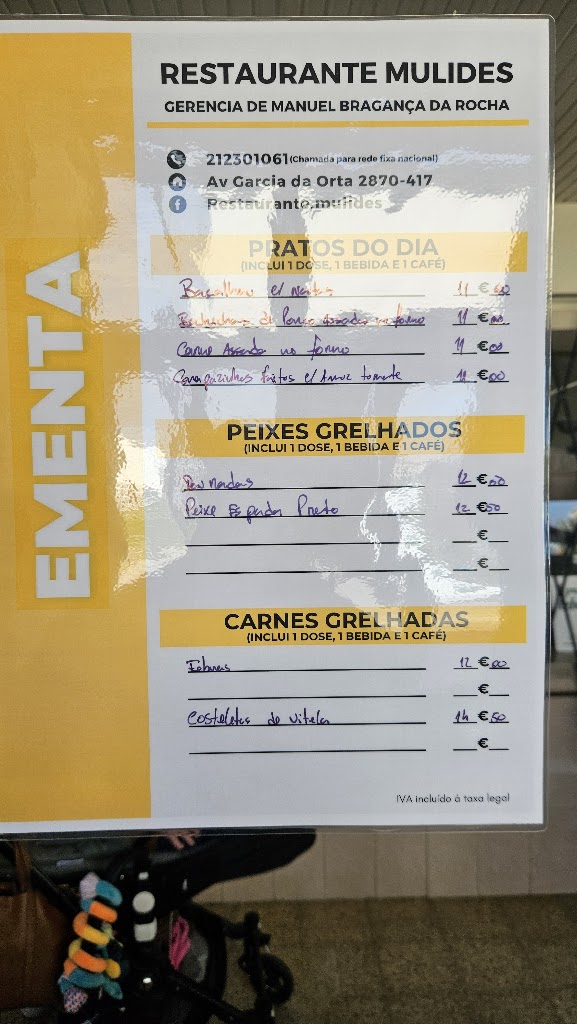 RESTAURANTE MULIDES
GERENCIA DE MANUEL BRAGANÇA DA ROCHA
212301061 (Chamada para rede fixa nacional)
Av Garcia da Orta 2870-417
Restaurante.mulides
EMENTA
PRATOS DO DIA
(INCLUI 1 DOSE, 1 BEBIDA E 1 CAFÉ)
Bacalhau c/ Natas 11 €
de Porco Assadas no forno 11 €00
Carne Assada no forno 11 €00
Carapauzinhos fritos c/ Arroz tomate 11 €00
PEIXES GRELHADOS
(INCLUI 1 DOSE, 1 BEBIDA E 1 CAFÉ)
12 €50
Peixe Espada Preto 12 €50
€
€
CARNES GRELHADAS
(INCLUI 1 DOSE, 1 BEBIDA E 1 CAFÉ)
12 €00
€
Costeletas de vitela 14 €50
€
IVA incluído à taxa legal